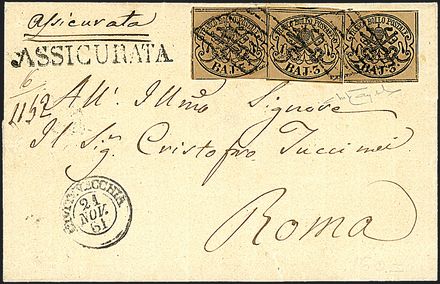 Assicurata
ASSICURATA
FRANCO BOLLO POSTALE FRANCO BOLLO POSTALE FRANCO BOLLO POSTALE
BAJ. 3 BAJ. 3 BAJ. 3
6
1152
All' Illmo Signore
Il Sig. Cristofro Tuccimei
CIVITAVECCHIA
21
NOV.
61
Roma